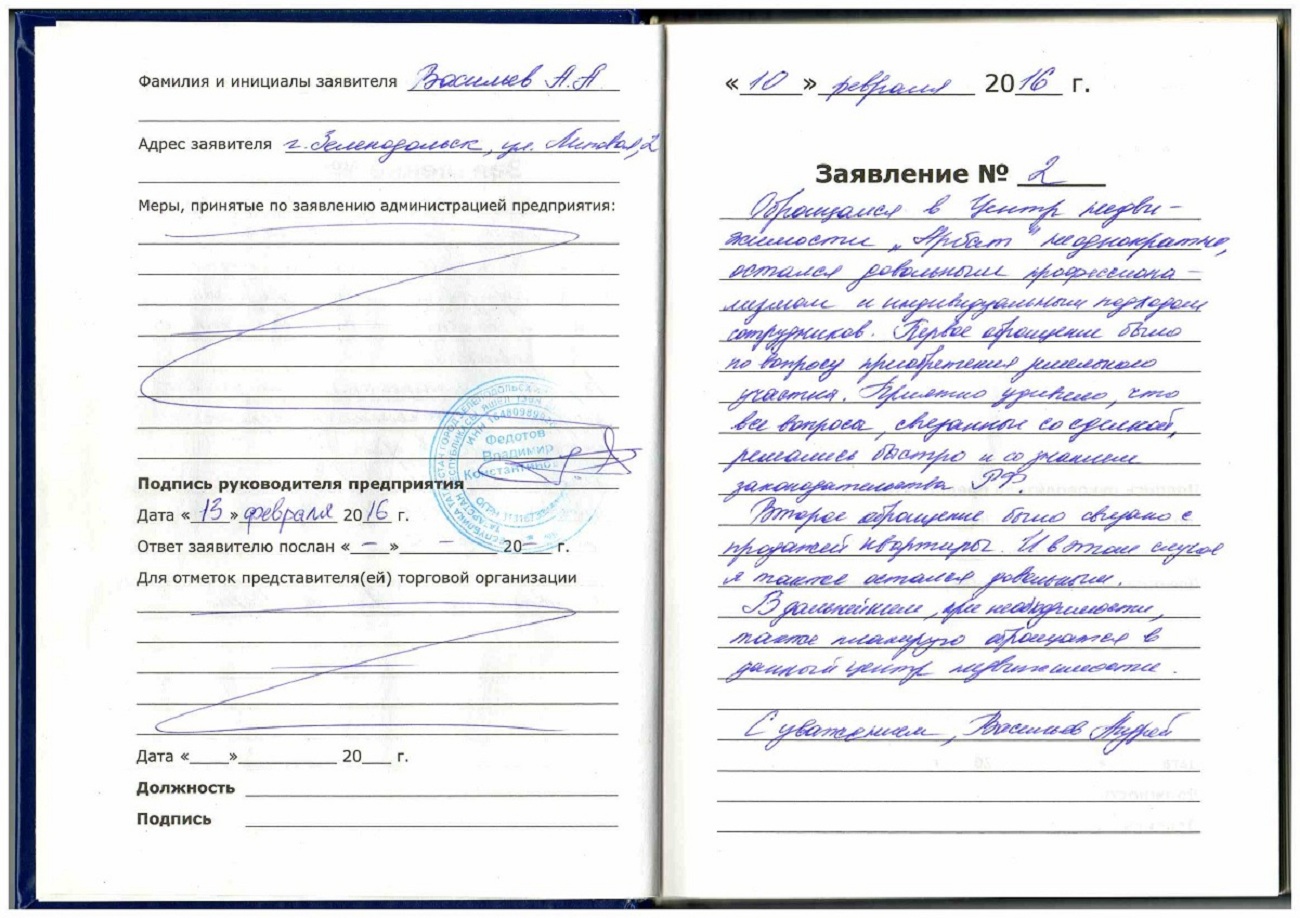 Фамилия и инициалы заявителя Васильев А.А
Адрес заявителя г. Зеленодольск, ул. Липовая, 2
Меры, принятые по заявлению администрацией предприятия:
Федотов
Владимир
Подпись руководителя предприятия
Дата «13» февраля 2016 г.
Ответ заявителю послан «–» – 20– г.
Для отметок представителя(ей) торговой организации
Дата «___»__________ 20___ г.
Должность
Подпись
«10» февраля 2016 г.
Заявление № 2
Обращался в Центр недви-
жимости „Арбат" неоднократно,
остался довольным профессиона-
лизмом и индивидуальным подходом
сотрудников. Первое обращение было
по вопросу приобретения земельного
участка. Приятно удивило, что
все вопросы, связанные со сделкой,
решались быстро и со знанием
законодательства РФ.
Второе обращение было связано с
продажей квартиры. И в этом случае
я также остался довольным.
В дальнейшем, при необходимости,
также планирую обращаться в
данный центр недвижимости.
С уважением, Васильев Андрей